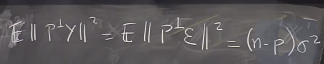 E || P^⊥ Y ||² = E || P^⊥ ε ||² = (n-p)σ²